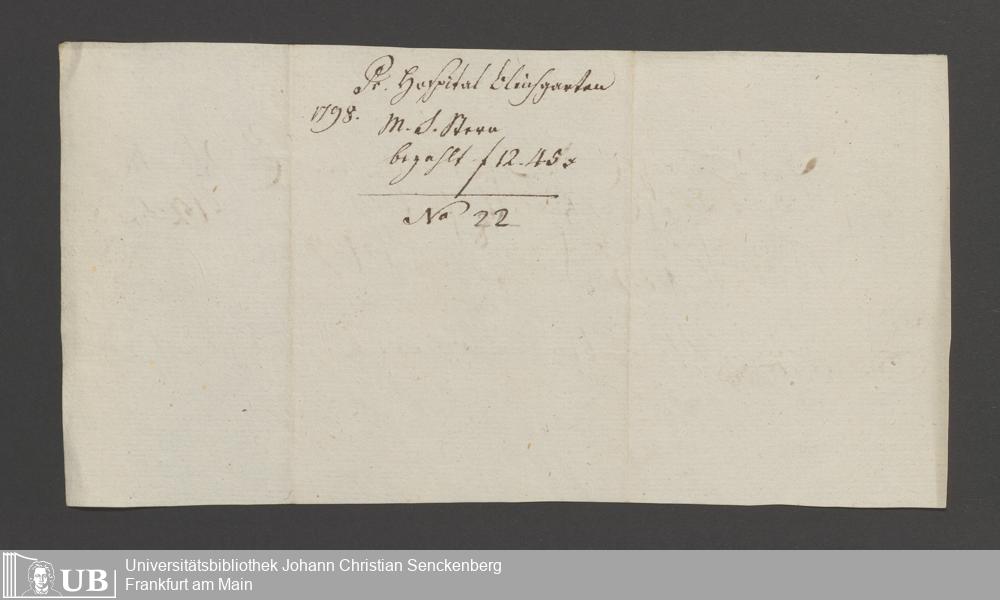 Pr. Hospital Bleichgarten
1798.
M. S. Stern
bezahlt f 12.45 x
No 22
UB
Universitätsbibliothek Johann Christian Senckenberg
Frankfurt am Main